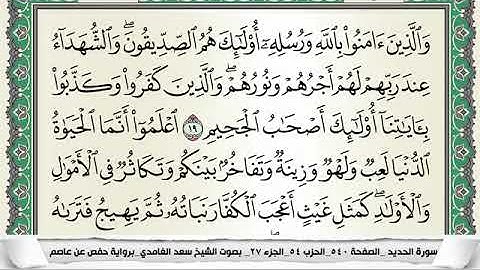 وَٱلَّذِينَ ءَامَنُوا۟ بِٱللَّهِ وَرُسُلِهِۦٓ أُو۟لَٰٓئِكَ هُمُ ٱلصِّدِّيقُونَ ۖ وَٱلشُّهَدَآءُ
عِندَ رَبِّهِمْ لَهُمْ أَجْرُهُمْ وَنُورُهُمْ ۖ وَٱلَّذِينَ كَفَرُوا۟ وَكَذَّبُوا۟
بِـَٔايَٰتِنَآ أُو۟لَٰٓئِكَ أَصْحَٰبُ ٱلْجَحِيمِ ١٩ ٱعْلَمُوٓا۟ أَنَّمَا ٱلْحَيَوٰةُ
ٱلدُّنْيَا لَعِبٌ وَلَهْوٌ وَزِينَةٌ وَتَفَاخُرٌۢ بَيْنَكُمْ وَتَكَاثُرٌ فِى ٱلْأَمْوَٰلِ
وَٱلْأَوْلَٰدِ ۖ كَمَثَلِ غَيْثٍ أَعْجَبَ ٱلْكُفَّارَ نَبَاتُهُۥ ثُمَّ يَهِيجُ فَتَرَىٰهُ
سورة الحديد _الصفحة ٥٤٠_الحزب ٥٤_الجزء ٢٧_ بصوت الشيخ سعد الغامدي_برواية حفص عن عاصم